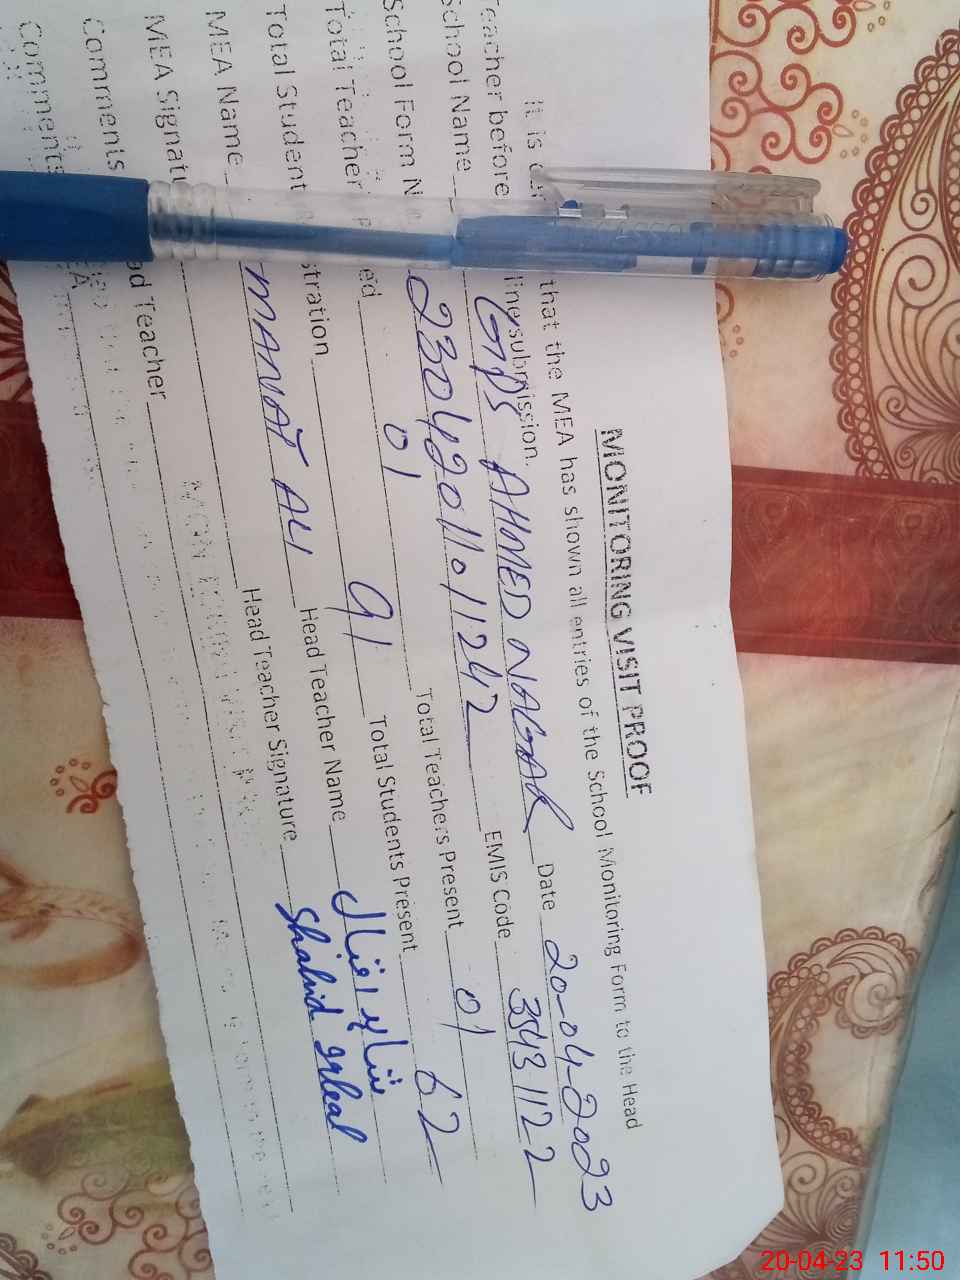 MONITORING VISIT PROOF
It is that the MEA has shown all entries of the School Monitoring Form to the Head
Teacher before line submission.
School Name GPS AHMED NAGAR Date 20-04-2023
School Form N 23042011011242 EMIS Code 3543 1122
Total Teacher p ed 01 Total Teachers Present 01
Total Student stration 91 Total Students Present 62
MEA Name MANAT ALI Head Teacher Name شاہد اقبال
MEA Signatu Head Teacher Signature Shahid Iqbal
Comments ad Teacher
Comments EA
20-04-23 11:50